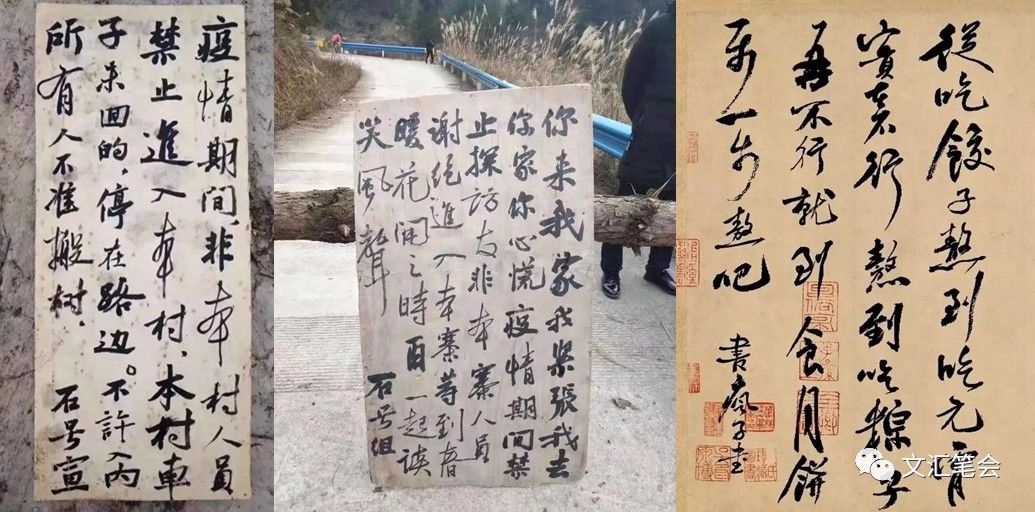 疫情期间,非本村人员
禁止進入本村,本村車
子未回的,停在路边。不許入内
所有人不准搬树,石号宣
你来我家我紧張我去
你家你心慌疫情期间禁
止探訪友非本寨人員
谢绝進入本寨等到春
暖花開之時再一起谈
笑風聲 石号组
從吃餃子熬到吃元宵
實在不行熬到吃粽子
再不行就到食月餅
步一步熬吧 書瘋子
文汇笔会